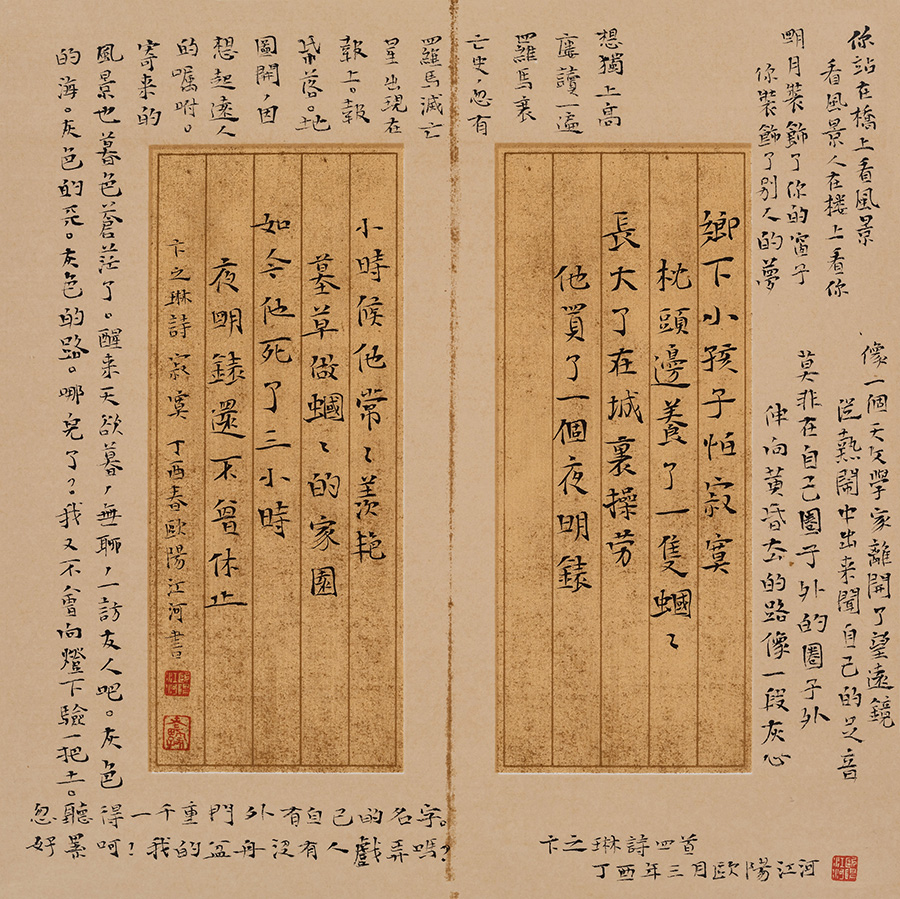 你站在橋上看風景
看風景人在楼上看你
明月裝飾了你的窗子
你裝飾了別人的夢
像一個天文學家離開了望遠鏡
從熱鬧中出來聞自己的足音
莫非在自己圈子外的圈子外
伸向黃昏去的路像一段灰心
想獨上高
廔讀一遍
羅馬衰
亡史,忽有
羅馬滅亡
星出現在
報上。報
紙落。地
圖開,因
想起遠人
的囑咐。
寄來的
風景也暮色蒼茫了。醒来天欲暮,無聊,一訪友人吧。灰色
的海。灰色的天。灰色的路。哪兒了?我又不會向燈下驗一把土。
忽聽得一千重門外有自己的名字。
好累呵!我的盆舟沒有人戲弄嗎?
鄉下小孩子怕寂寞
枕頭邊養了一隻蟈〻
長大了在城裏操勞
他買了一個夜明錶
小時候他常〻羨艳
墓草做蟈〻的家園
如今他死了三小時
夜明錶還不曾休止
卞之琳詩 寂寞 丁酉春歐陽江河書
卞之琳詩四首
丁酉年三月歐陽江河